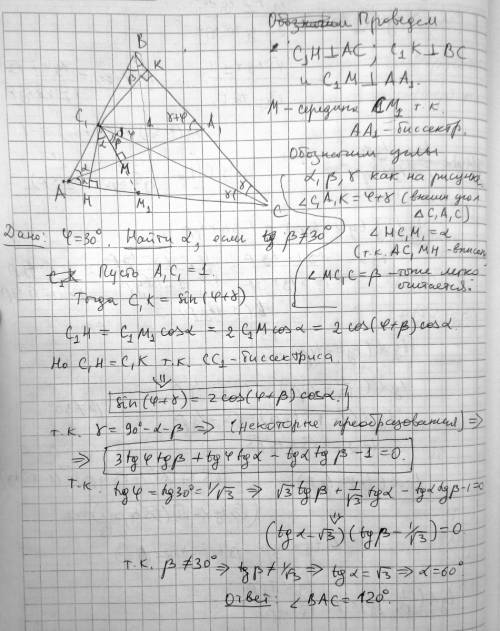 Проведем
C₁H⊥AC; C₁K⊥BC
и C₁M⊥AA₁.
M – середина CM₁ т.к.
AA₁ – биссектр.
Обозначим углы
α, β, γ как на рисунке
∠C₁A₁K = φ+γ (внешн угол
ΔC₁A₁C)
∠HC₁M₁ = α
(т.к. AC₁MH – впис
∠MC₁C = β – тоже легко
считается.
B
K
β
C₁
γ+φ
A₁
φ
α
β
α
α
M
A
H
M₁
γ
γ
C
Дано: φ=30°. Найти α, если β≠30°
Пусть A₁C₁ = 1.
Тогда C₁K = sin(φ+γ)
C₁H = C₁M₁ cosα = 2 C₁M cosα = 2 cos(φ+β) cosα
Но C₁H = C₁K т.к. CC₁ – биссектриса
⇓
sin(φ+γ) = 2cos(φ+β) cosα.
т.к. γ = 90°-α-β ⇒ (некоторые преобразования) ⇒
⇒ 3tgφ tgβ + tgφ tgα - tgα tgβ - 1 = 0.
т.к. tgφ = tg30° = 1/√3 ⇒ √3 tgβ + 1/√3 tgα - tgα tgβ - 1 = 0
⇓
(tgα - √3)(tgβ - 1/√3) = 0
т.к. β ≠ 30° ⇒ tgβ ≠ 1/√3 ⇒ tgα = √3 ⇒ α = 60°
Ответ: ∠BAC = 120°.